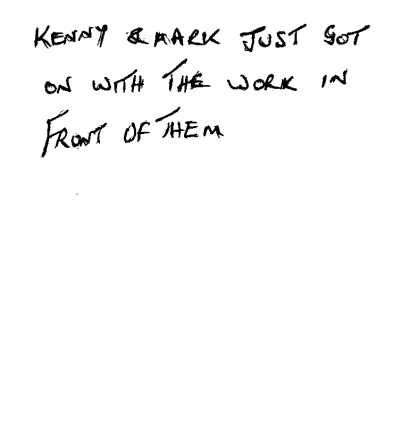 KENNY & MARK JUST GOT
ON WITH THE WORK IN
FRONT OF THEM